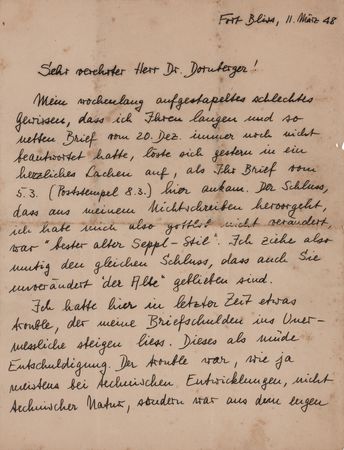 Fort Bliss, 11. März 48
Sehr verehrter Herr Dr. Dornberger!
Mein wochenlang aufgestapeltes schlechtes
Gewissen, dass ich Ihren langen und so
netten Brief vom 20. Dez. immer noch nicht
beantwortet hatte, löste sich gestern in ein
herzliches Lachen auf, als Ihr Brief vom
5.3. (Poststempel 8.3.) hier ankam. Der Schluss,
dass aus meinem Nichtschreiben hervorgeht,
ich hätte mich also gottlob nicht verändert,
war "bester alter Seppl-Stil". Ich ziehe also
mutig den gleichen Schluss, dass auch Sie
unverändert "der Alte" geblieben sind.
Ich hatte hier in letzter Zeit etwas
trouble, der meine Briefschulden ins Uner-
messliche steigen liess. Dieses als müde
Entschuldigung. Der trouble war, wie ja
meistens bei technischen Entwicklungen, nicht
technischer Natur, sondern war aus dem engen